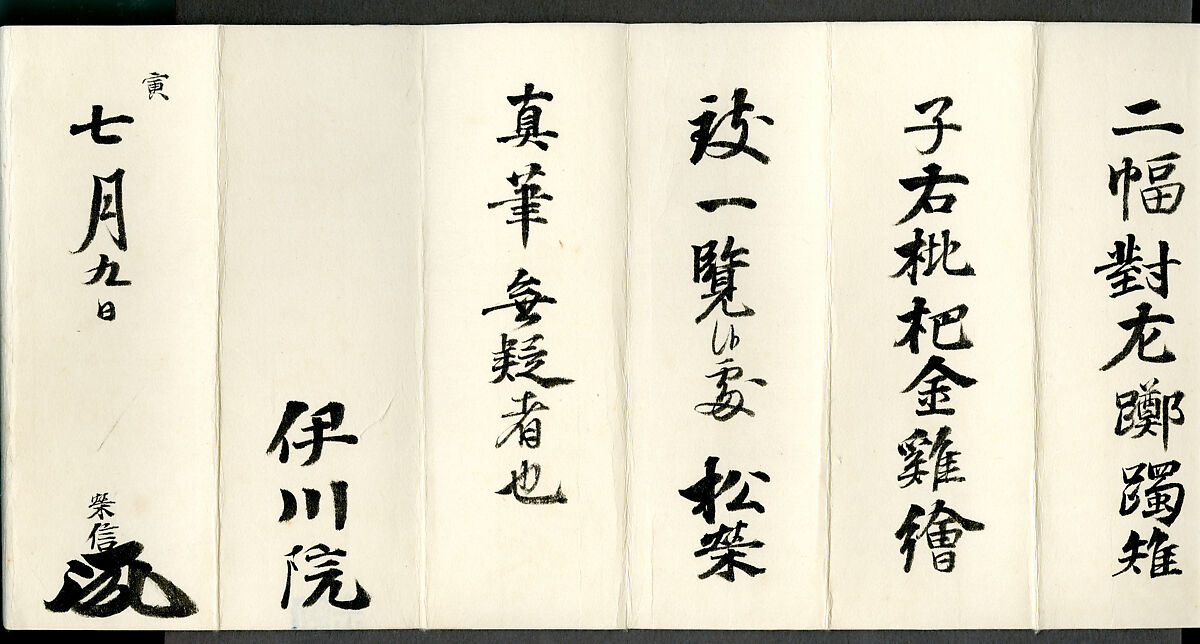 二幅對左躑躅雉
子右枇杷金雞繪
致一覧候處松榮
真筆無疑者也
伊川院
寅
七月九日
榮信